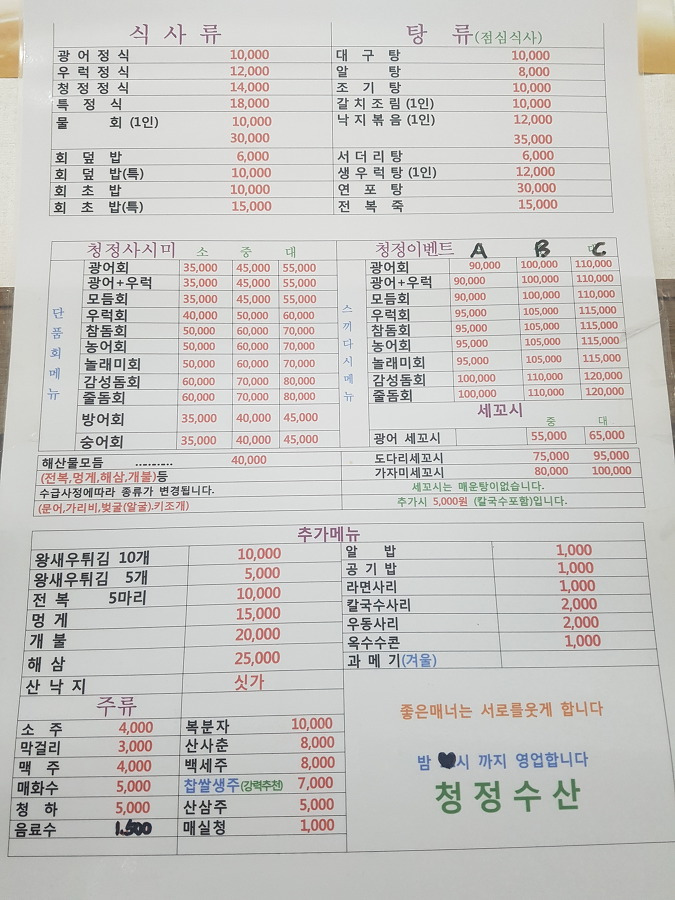 식 사 류
광 어 정 식 10,000
우 럭 정 식 12,000
청 정 정 식 14,000
특 정 식 18,000
물 회 (1인) 10,000
30,000
회 덮 밥 6,000
회 덮 밥(특) 10,000
회 초 밥 10,000
회 초 밥(특) 15,000
탕 류(점심식사)
대 구 탕 10,000
알 탕 8,000
조 기 탕 10,000
갈 치 조 림 (1인) 10,000
낙 지 볶 음 (1인) 12,000
35,000
서 더 리 탕 6,000
생 우 럭 탕 (1인) 12,000
연 포 탕 30,000
전 복 죽 15,000
청정사시미 소 중 대
단품회메뉴
광어회 35,000 45,000 55,000
광어+우럭 35,000 45,000 55,000
모듬회 35,000 45,000 55,000
우럭회 40,000 50,000 60,000
참돔회 50,000 60,000 70,000
농어회 50,000 60,000 70,000
놀래미회 50,000 60,000 70,000
감성돔회 60,000 70,000 80,000
줄돔회 60,000 70,000 80,000
방어회 35,000 40,000 45,000
숭어회 35,000 40,000 45,000
청정이벤트 A B C
스끼다시메뉴
광어회 90,000 100,000 110,000
광어+우럭 90,000 100,000 110,000
모듬회 90,000 100,000 110,000
우럭회 95,000 105,000 115,000
참돔회 95,000 105,000 115,000
농어회 95,000 105,000 115,000
놀래미회 95,000 105,000 115,000
감성돔회 100,000 110,000 120,000
줄돔회 100,000 110,000 120,000
세꼬시
중 대
광어 세꼬시 55,000 65,000
도다리세꼬시 75,000 95,000
가자미세꼬시 80,000 100,000
세꼬시는 매운탕이없습니다.
추가시 5,000원 (칼국수포함)입니다.
해산물모듬 ........... 40,000
(전복,멍게,해삼,개불)등
수급사정에따라 종류가 변경됩니다.
(문어,가리비,벚굴(알굴).키조개)
추가메뉴
왕새우튀김 10개 10,000
왕새우튀김 5개 5,000
전 복 5마리 10,000
멍 게 15,000
개 불 20,000
해 삼 25,000
산 낙 지 싯가
알 밥 1,000
공 기 밥 1,000
라면사리 1,000
칼국수사리 2,000
우동사리 2,000
옥수수콘 1,000
과 메 기(겨울)
주류
소 주 4,000
막걸리 3,000
맥 주 4,000
매화수 5,000
청 하 5,000
음료수 1.500
복분자 10,000
산사춘 8,000
백세주 8,000
찹쌀생주(강력추천) 7,000
산삼주 5,000
매실청 1,000
좋은매너는 서로를웃게 합니다
밤 시 까지 영업합니다
청정수산